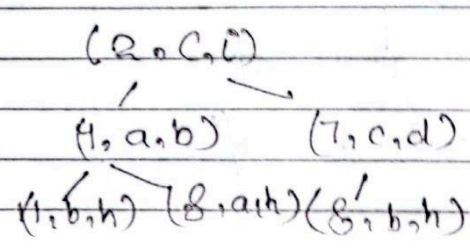 (2, C, i)
(4, a, b) (7, c, d)
(1, b, h) (8, a, h) (8, b, h)